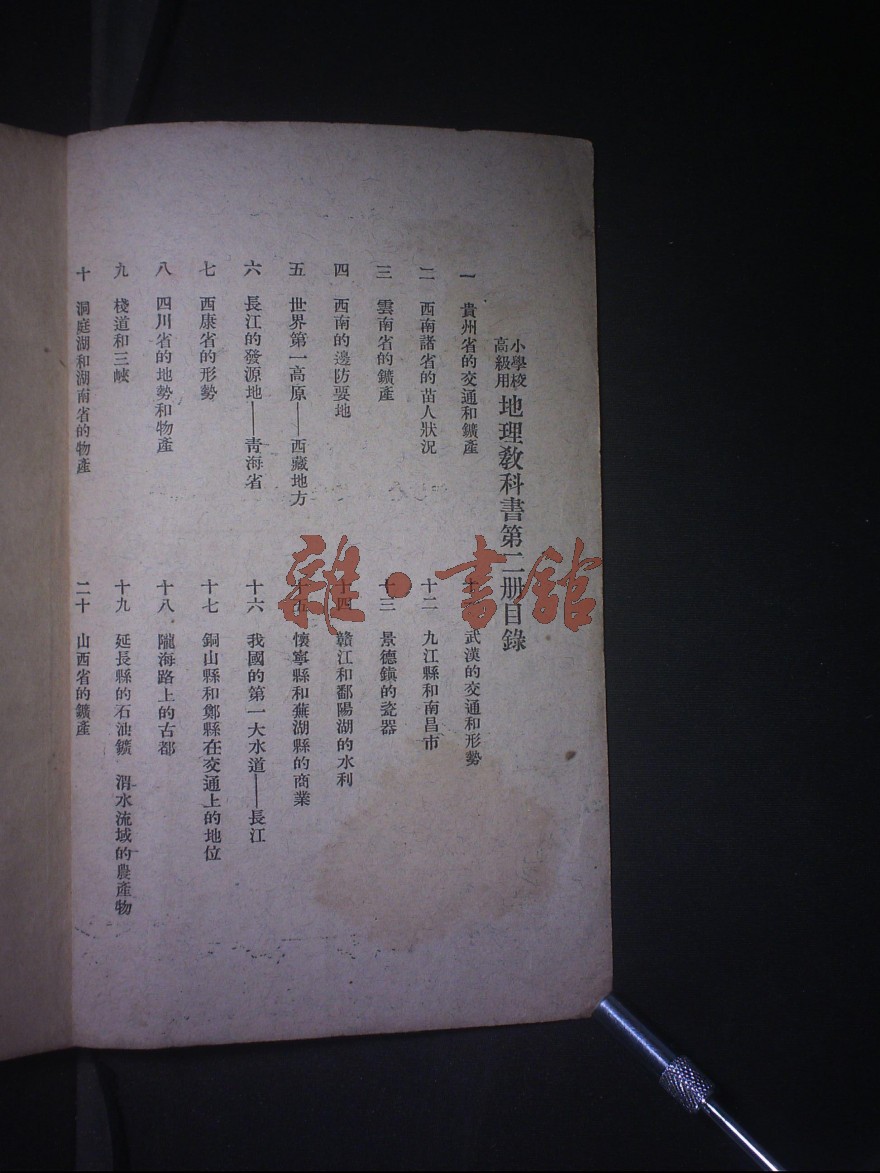 小學校高級用 地理教科書第二册目錄
一 貴州省的交通和鑛產
二 西南諸省的苗人狀況
三 雲南省的鑛產
四 西南的邊防要地
五 世界第一高原——西藏地方
六 長江的發源地——靑海省
七 西康省的形勢
八 四川省的地勢和物產
九 棧道和三峽
十 洞庭湖和湖南省的物產
十一 武漢的交通和形勢
十二 九江縣和南昌市
十三 景德鎭的瓷器
十四 贛江和鄱陽湖的水利
十五 懷寧縣和蕪湖縣的商業
十六 我國的第一大水道——長江
十七 銅山縣和鄭縣在交通上的地位
十八 隴海路上的古都
十九 延長縣的石油鑛 渭水流域的農產物
二十 山西省的鑛產
雜·書館